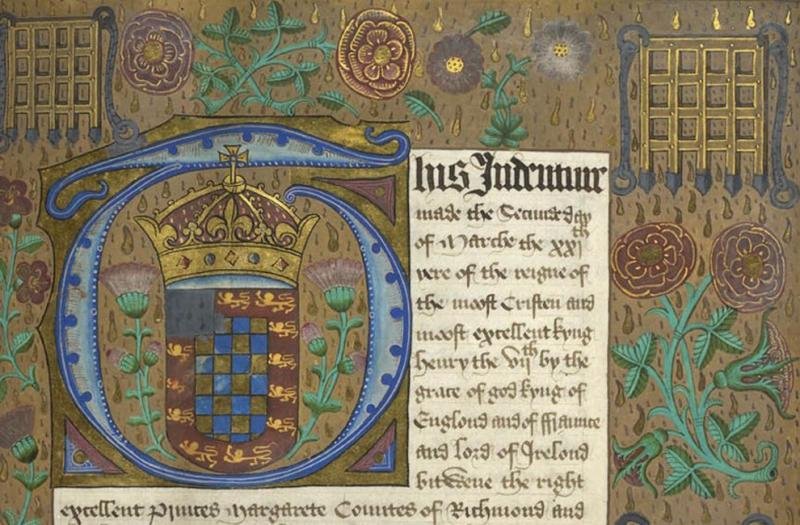 This Indenture
made the Secunde day
of Marche the xxjth
yere of the reigne of
the moost Cristen and
moost excellent kyng
henry the viith by the
grace of god kyng of
Englond and of ffraunce
and lord of Irelond
bitwene the right
excellent princes Margarete Countes of Richmond and